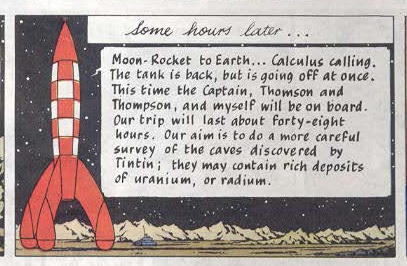 Some hours later...
Moon-Rocket to Earth... Calculus calling.
The tank is back, but is going off at once.
This time the Captain, Thomson and
Thompson, and myself will be on board.
Our trip will last about forty-eight
hours. Our aim is to do a more careful
survey of the caves discovered by
Tintin; they may contain rich deposits
of uranium, or radium.